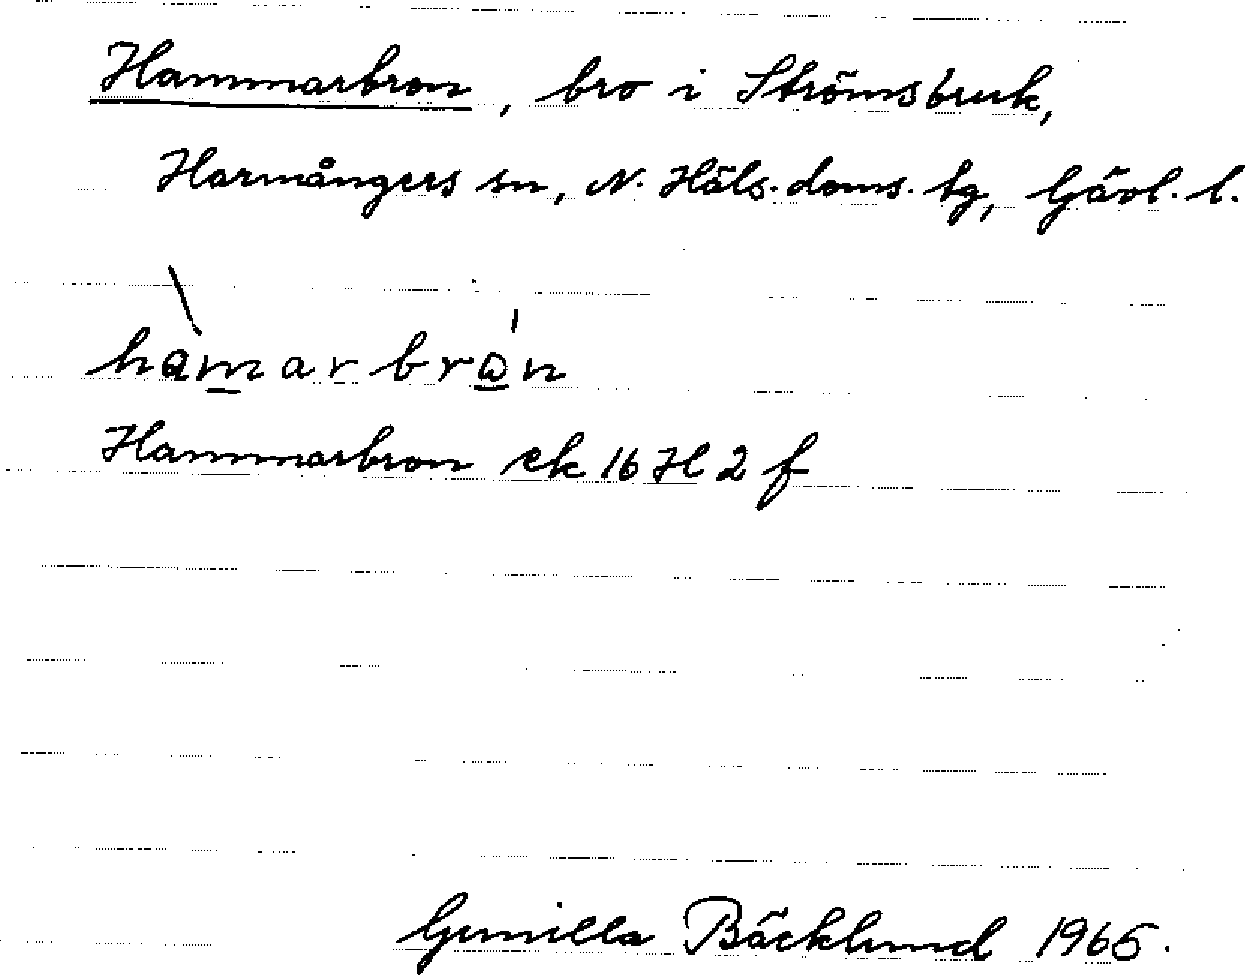 Hammarbron, bro i Strömsbruk,
Harmångers sn, N. Häls. doms. tg, Gävl. l.
hàmarbrɷ́n
Hammarbron ek 16 H 2 f
Gunilla Bäcklund 1965.